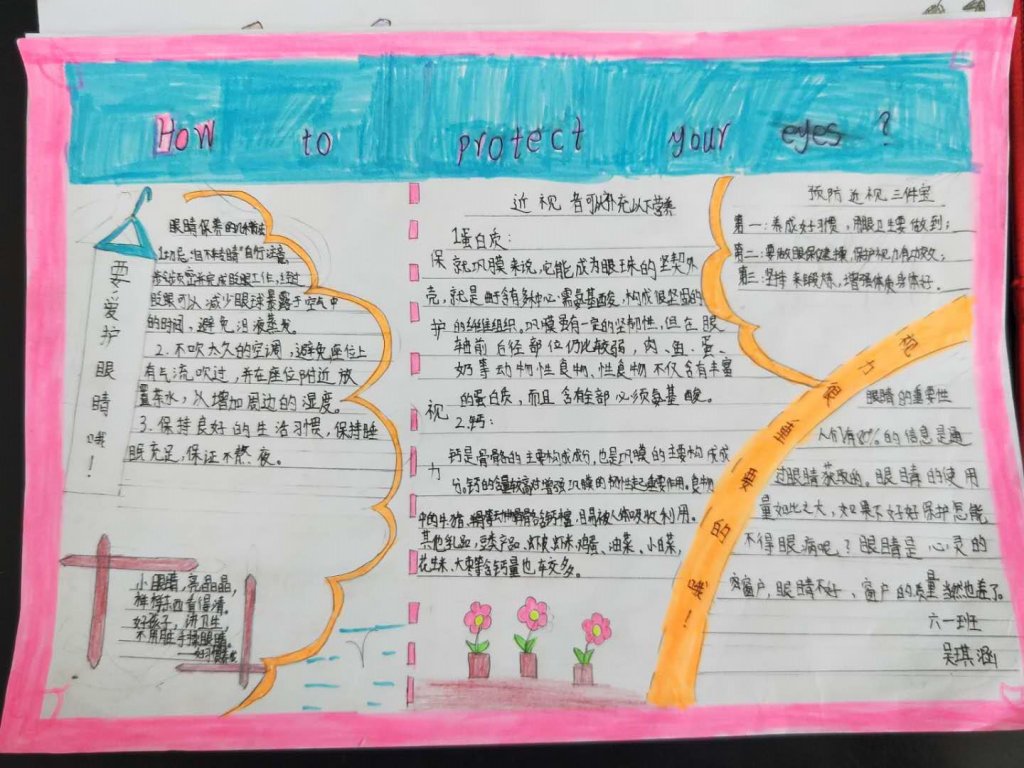 How to protect your eyes ?
要爱护眼睛哦！
眼睛保养的小做法
眨眼可以减少眼球暴露于空气中
的时间，避免泪液蒸发。
2. 不吹太久的空调，避免座位上
有气流吹过，并在座位附近放
置茶水，以增加周边的湿度。
3. 保持良好的生活习惯，保持睡
眠充足，保证不熬夜。
小眼睛，亮晶晶，
样样东西看得清。
好孩子，讲卫生，
不用脏手揉眼睛。
保护视力
近视者可以补充以下营养
1蛋白质：
就巩膜来说，它能成为眼球的坚契外
壳，就是由于含有多种必需氨基酸，构成很坚固的
的纤维组织，巩膜虽有一定的坚韧性，但在眼
轴前后径部位仍比较弱，肉、鱼、蛋、
奶等动物性食物，性食物不仅含有丰富
的蛋白质，而且含有全部必须氨基酸。
2.钙：
钙是骨骼的主要构成成分，也是巩膜的主要构成成
分。钙的含量较高对增强巩膜的韧性起重要作用。食物
中的牛猪、钙，且易被人体吸收利用。
其他乳品，豆类产品、虾皮虾米、鸡蛋、油菜、小白菜，
花生米、大枣等含钙量也较多。
预防近视三件宝
第一：养成好习惯，用眼卫生要做到；
第二：要做眼保健操，保护视力有功效；
第三：坚持来锻炼，增强体质身体好。
视力很重要的哦！
眼睛的重要性
人们有80%的信息是通
过眼睛获取的。眼睛的使用
量如此之大，如果不好好保护怎能
不得眼病呢？眼睛是心灵的
窗户，眼睛不好，窗户的质量当然也差了。
六一班
吴琪涵